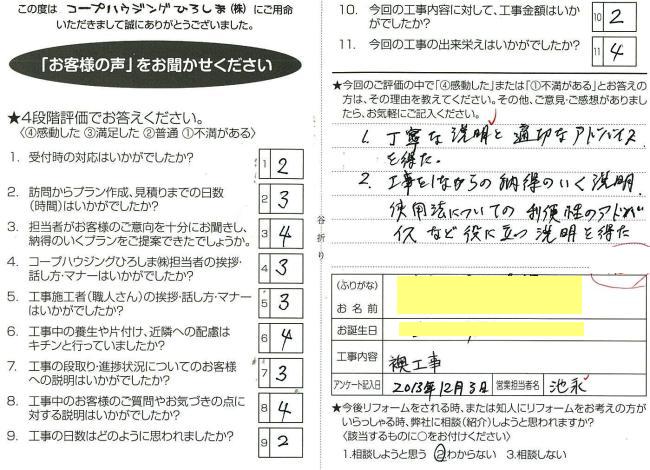 この度は コープハウジングひろしま(株) にご用命
いただきまして誠にありがとうございました。
「お客様の声」をお聞かせください
★4段階評価でお答えください。
〈④感動した ③満足した ②普通 ①不満がある〉
1. 受付時の対応はいかがでしたか？ 1 2
2. 訪問からプラン作成、見積りまでの日数
(時間)はいかがでしたか？ 2 3
3. 担当者がお客様のご意向を十分にお聞きし、
納得のいくプランをご提案できたでしょうか。 3 4
4. コープハウジングひろしま㈱担当者の挨拶・
話し方・マナーはいかがでしたか？ 4 3
5. 工事施工者(職人さん)の挨拶・話し方・マナー
はいかがでしたか？ 5 3
6. 工事中の養生や片付け、近隣への配慮は
キチンと行っていましたか？ 6 4
7. 工事の段取り・進捗状況についてのお客様
への説明はいかがでしたか？ 7 3
8. 工事中のお客様のご質問やお気づきの点に
対する説明はいかがでしたか？ 8 4
9. 工事の日数はどのように思われましたか？ 9 2
谷折り
10. 今回の工事内容に対して、工事金額はいか
がでしたか？ 10 2
11. 今回の工事の出来栄えはいかがでしたか？ 11 4
★今回のご評価の中で「④感動した」または「①不満がある」とお答えの
方は、その理由を教えてください。その他、ご意見・ご感想がありまし
たら、お気軽にご記入ください。
1. 丁寧な説明と適切なアドバイス
を得た。
2. 工事をしながらの納得のいく説明、
使用法についての利便性のアドバ
イスなど役に立つ説明を得た
(ふりがな)
お名前
お誕生日
工事内容 襖工事
アンケート記入日 2013年12月3日 営業担当者名 池永
★今後リフォームをされる時、または知人にリフォームをお考えの方が
いらっしゃる時、弊社に相談(紹介)しようと思われますか？
〈該当するものに○をお付けください〉
1.相談しようと思う ②わからない 3.相談しない